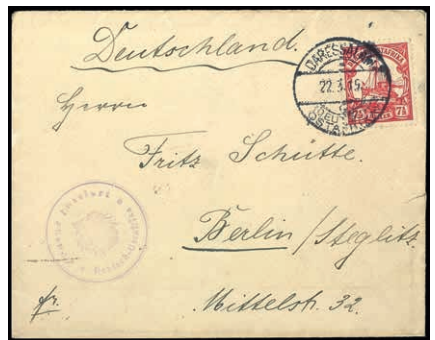 Deutschland.
DARESSALAM
22.3.15
OSTAFRIKA
7½
Herrn
Fritz Schütte.
Berlin/Steglitz
Mittelstr. 32.
fr.